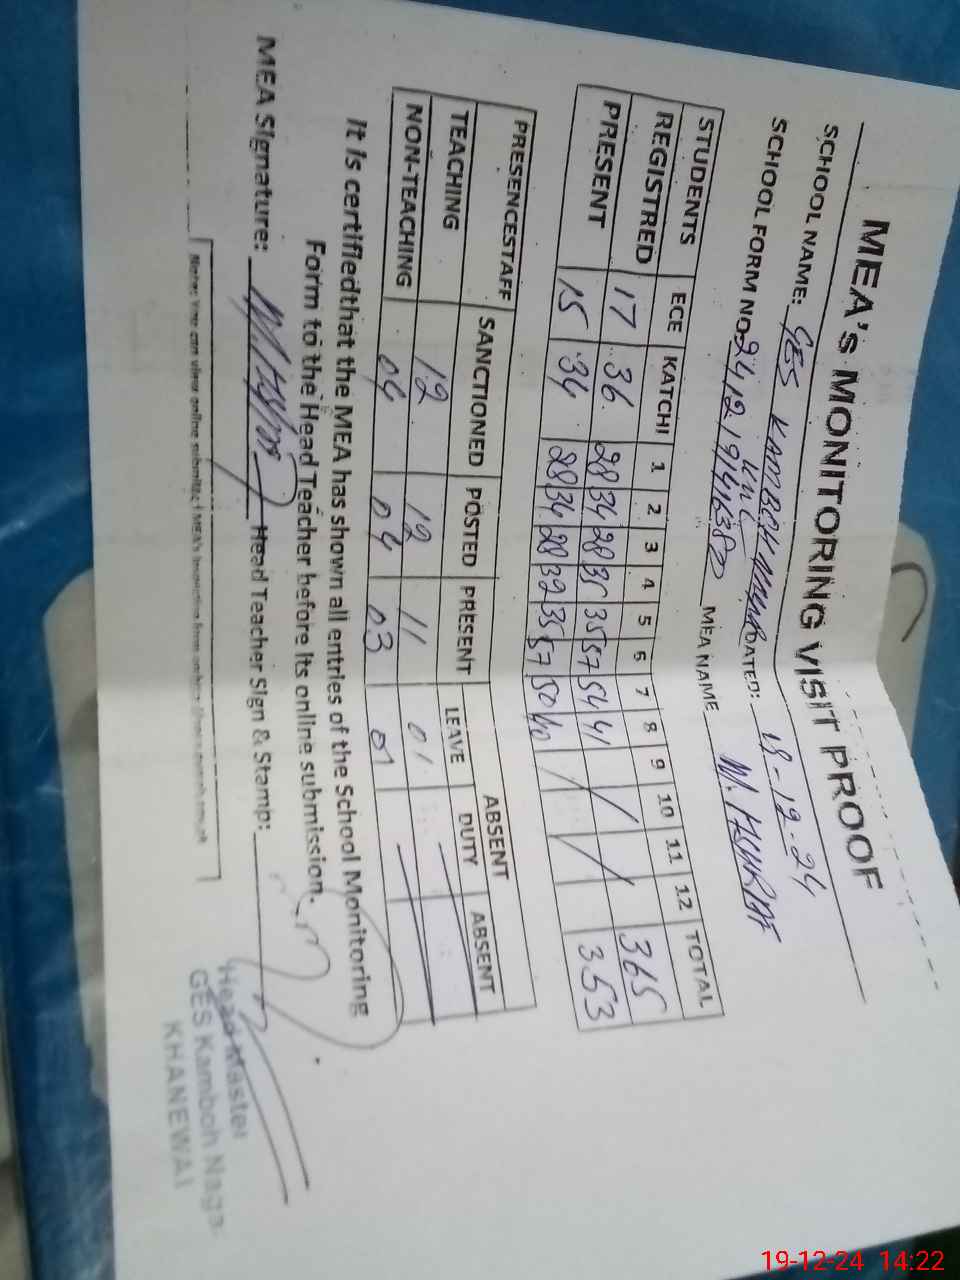 MEA's MONITORING VISIT PROOF
SCHOOL NAME: GES KAMBOH NAGAR DATED: 19-12-24
KWL
SCHOOL FORM NO: 2412191416380 MEA NAME M. ASHRAF
STUDENTS ECE KATCHI 1 2 3 4 5 6 7 8 9 10 11 12 TOTAL
REGISTRED 17 36 28 34 28 35 35 57 54 41 / / 365
PRESENT 15 34 28 34 28 32 35 57 50 40 / / 353
ABSENT
PRESENCESTAFF SANCTIONED POSTED PRESENT LEAVE DUTY ABSENT
TEACHING 12 12 11 01
NON-TEACHING 04 04 03 01
It is certifiedthat the MEA has shown all entries of the School Monitoring
Form to the Head Teacher before its online submission.
MEA Signature: Head Teacher Sign & Stamp:
Head Master
GES Kamboh Naga
KHANEWAL
Note: You can view online submitted MEA's
19-12-24 14:22